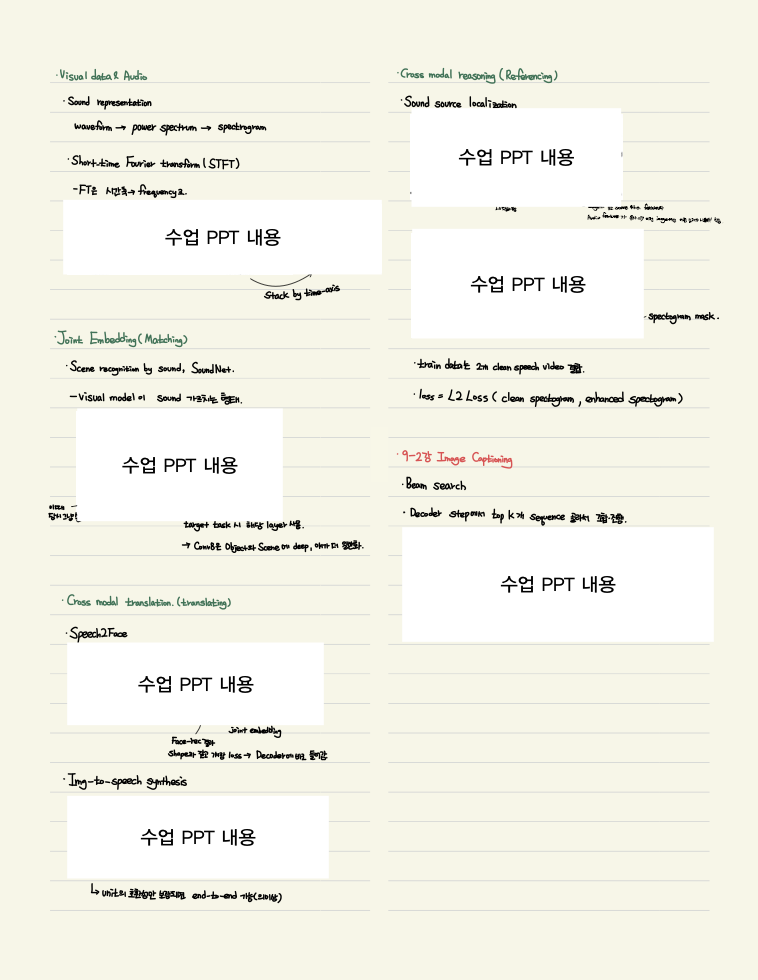 ·Visual data & Audio
·Sound representation
waveform → power spectrum → spectrogram
·Short-time Fourier transform (STFT)
-FT은 시간축→frequency로.
수업 PPT 내용
Stack by time-axis
·Joint Embedding (Matching)
·Scene recognition by sound, SoundNet.
-Visual model이 sound 가르치는 형태.
수업 PPT 내용
target task시 해당 layer 사용.
→ Conv8은 Object와 Scene에 deep,
·Cross modal translation. (translating)
·Speech2Face
수업 PPT 내용
joint embedding
Face-rec 결과
loss → Decoder에 바로 들어감
·Img-to-speech synthesis
수업 PPT 내용
↳ unit의 호환성만 보장되면 end-to-end 가능(의미상)
·Cross modal reasoning (Referencing)
·Sound source localization
수업 PPT 내용
수업 PPT 내용
spectogram mask.
·train data는 2개 clean speech video 결합.
·loss = L2 Loss ( clean spectogram , enhanced spectogram )
·9-2강 Image Captioning
·Beam search
·Decoder step에서 top k개 sequence 골라서
수업 PPT 내용